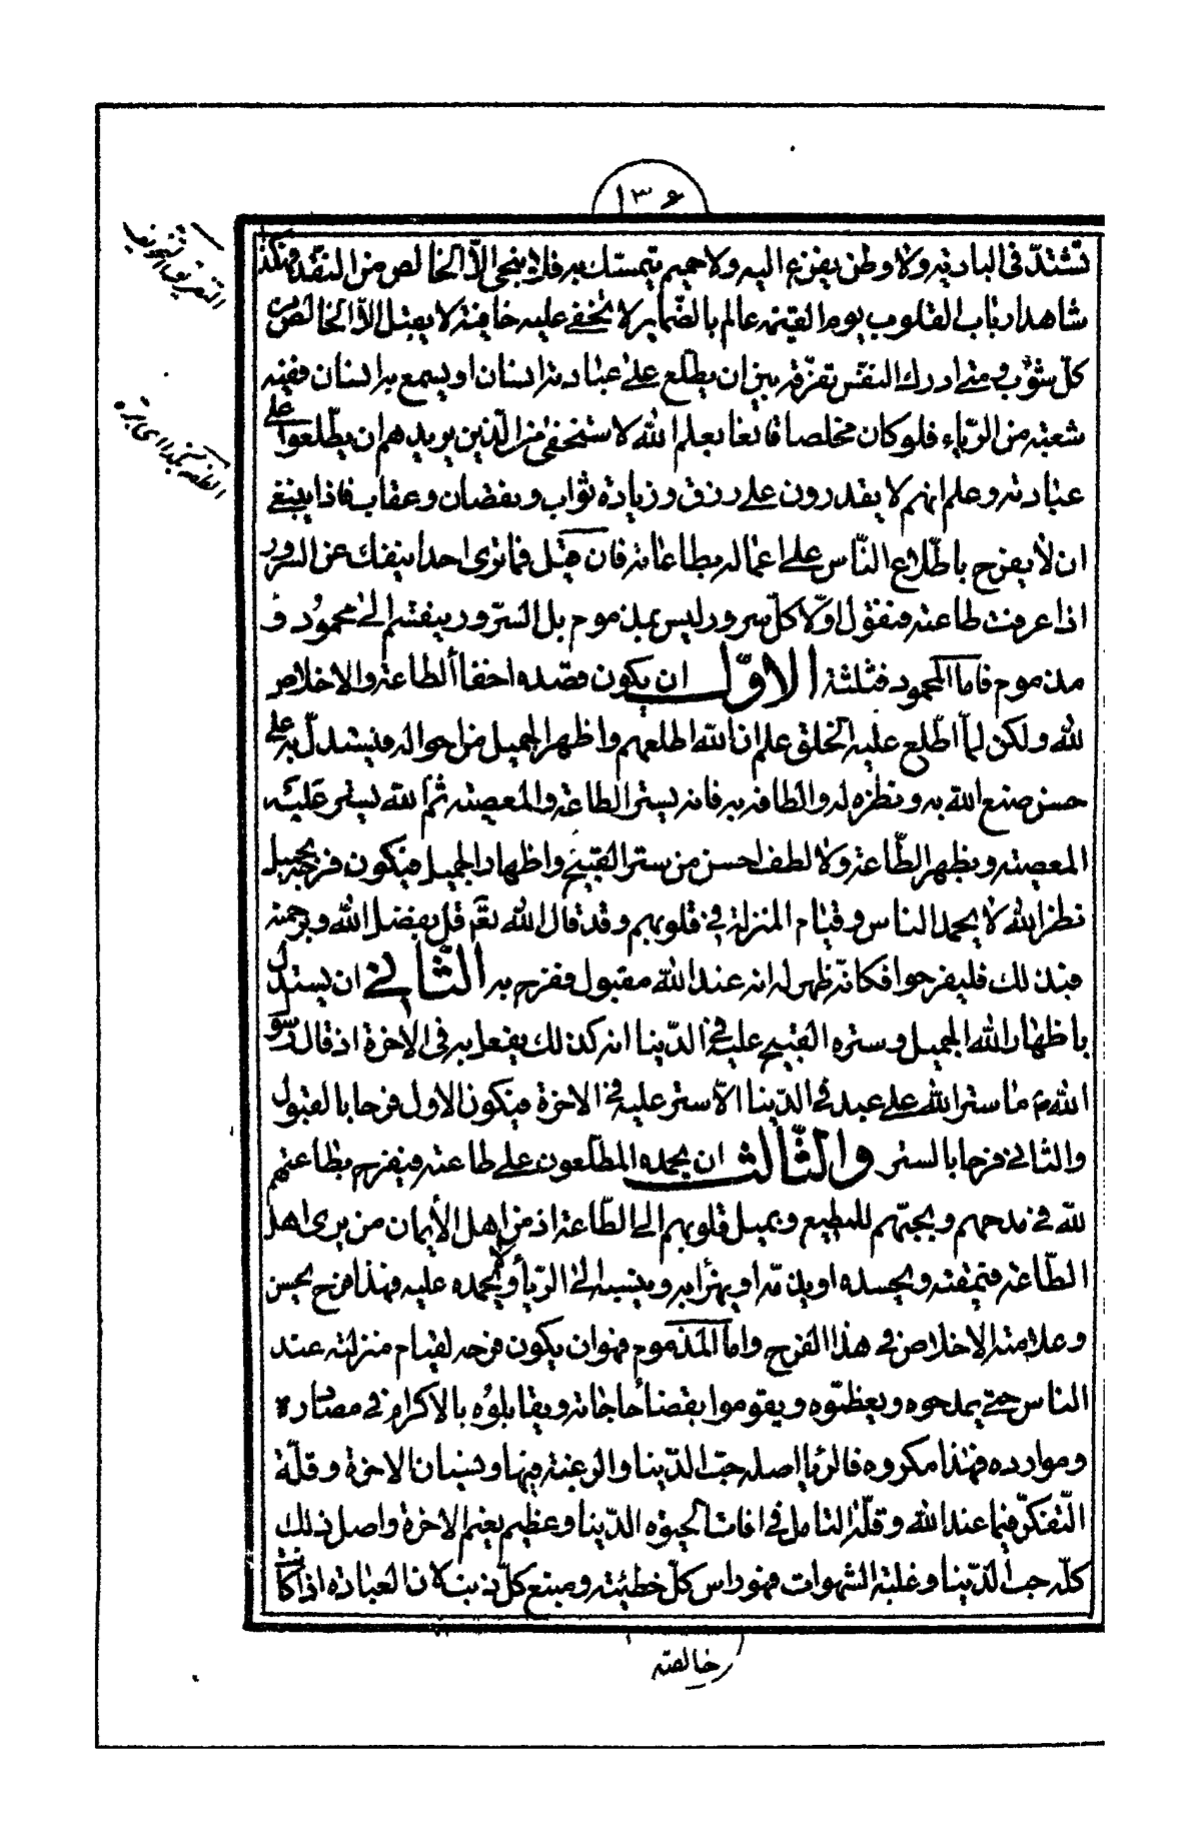 ١٣۶
تشتدّ فى البادية ولا وطن يفزع اليه ولا حميم يتمسّك به فلا ينجى الّا الخالص من النقد فهكذا
شاهد ارباب القلوب يوم القيمة عالم بالضّماير لا تخفى عليه خافية لا يقبل الّا الخالص من
كلّ شوب ومتى ادرك النفس تفرقة بين ان يطلع على عبادته انسان او يسمع به انسان ففيه
شعبة من الرّياء فلو كان مخلصا قانعا بعلم اللّه لاستخفى من الّذين يريدهم ان يطّلعوا على
عبادته وعلم انهم لا يقدرون على رزق وزيادة ثواب ونقصان وعقاب فاذا ينبغى
ان لا يفرح باطّلاع النّاس على اعماله بطاعاته فان قيل فما ترى احدا ينفك عن السّرور
اذا عرفت طاعته فنقول اوّلا كلّ سرور ليس بمذموم بل السّرور ينقسم الى محمود و
مذموم فاما المحمود فثلثة الاوّل ان يكون قصده اخفاأ الطاعة والاخلاص
للّه ولكن لمّا اطّلع عليه الخلق علم ان اللّه اطلعهم واظهر الجميل من احواله فيستدلّ به على
حسن صنع اللّه به ونظره له والطافه به فانه يستر الطاعة والمعصية ثم اللّه يستر عليه
المعصية ويظهر الطّاعة ولا لطف احسن من ستر القبيح واظهار الجميل فيكون فرحه بجميل
نظر اللّه لا بحمد الناس وقيام المنزلة فى قلوبهم وقد قال اللّه تعم قل بفضل اللّه وبرحمته
فبذلك فليفرحوا فكانّه ظهر له انه عند اللّه مقبول ففرح به الثّانى ان يستدل
باظهار اللّه الجميل وستره القبيح عليه فى الدّنيا انه كذلك يفعل به فى الاخرة اذ قال رسو
اللّه م ما ستر اللّه على عبد فى الدّنيا الّا ستر عليه فى الاخرة فيكون الاول فرحا بالقبول
والثانى فرحا بالستر والثّالث ان يحمده المطلعون على طاعته فيفرح بطاعتهم
للّه فى مدحهم وبحبّهم للمطيع وبميل قلوبهم الى الطّاعة اذ من اهل الأيمان من يرى اهل
الطّاعة فيمقته ويحسده او يذمّه او يهزأ به وينسبه الى الرّيأ ولا يحمده عليه فهذا فرح بحسن
وعلامة الاخلاص فى هذا الفرح واما المذموم فهو ان يكون فرحه لقيام منزلته عند
الناس حتى يمدحوه ويعظّموه ويقوموا بقضأ حاجاته ويقابلوه بالاكرام فى مصادره
وموارده فهذا مكروه فالريا اصله حبّ الدّنيا والرغبة فيها ونسيان الاخرة وقلّة
التّفكّر فيما عند اللّه وقلّة التامل فى افات الحيوة الدّنيا وعظيم نعيم الاخرة واصل ذلك
كلّه حب الدّنيا وغلبة الشهوات فهو راس كلّ خطيئة ومنبع كلّ ذنب لان العبادة اذا كانت
خالصة